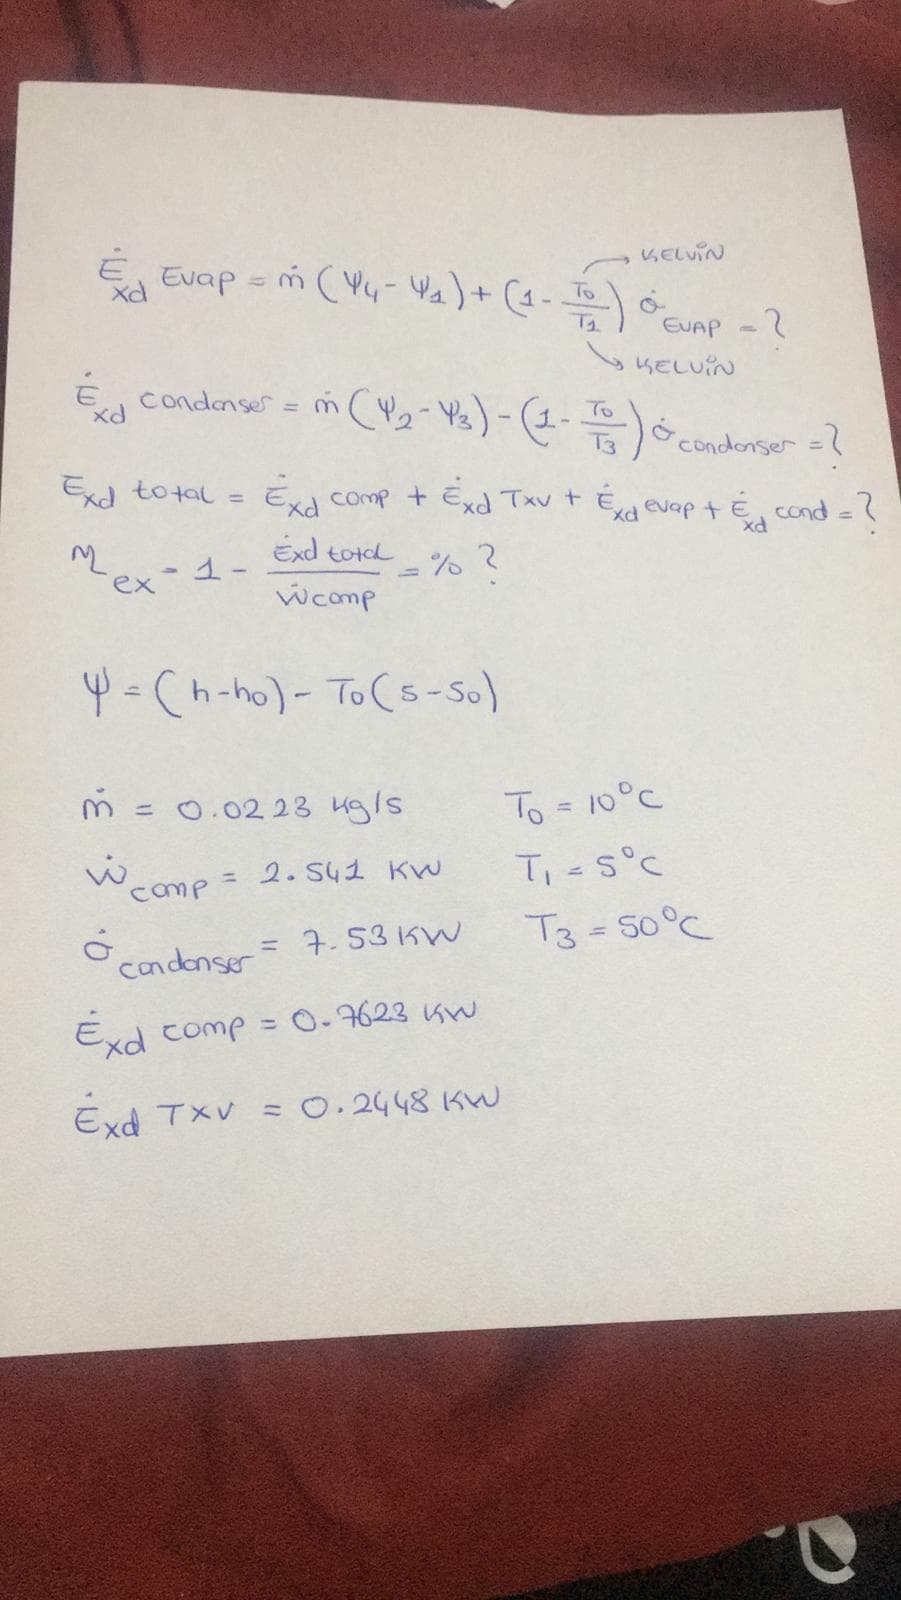 Ėxd Evap = ṁ (Ψ4 - Ψ1) + (1 - T0/T1) Q̇ EVAP = ?
→ KELVİN
→ KELVİN
Ėxd condenser = ṁ (Ψ2 - Ψ3) - (1 - T0/T3) Q̇ condenser = ?
Exd total = Ėxd comp + Ėxd Txv + Ėxd evap + Ėxd cond = ?
η ex = 1 - Exd total / Ẇcomp = % ?
Ψ = (h-h0) - T0 (s-s0)
ṁ = 0.0223 kg/s T0 = 10°C
Ẇ comp = 2.541 KW T1 = 5°C
Q̇ condenser = 7.53 KW T3 = 50°C
Ėxd comp = 0.7623 KW
Ėxd TXV = 0.2448 KW